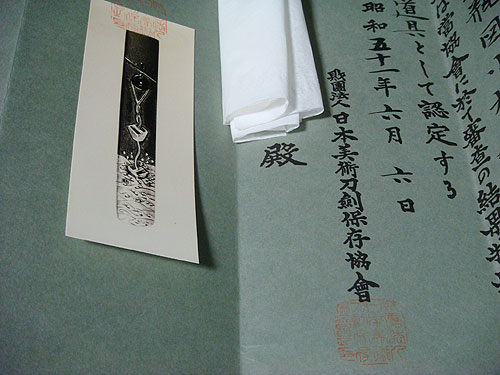 當協會に於て審査の結果
道具として認定する
昭和五十一年六月六日
財團法人日本美術刀劍保存協會
殿